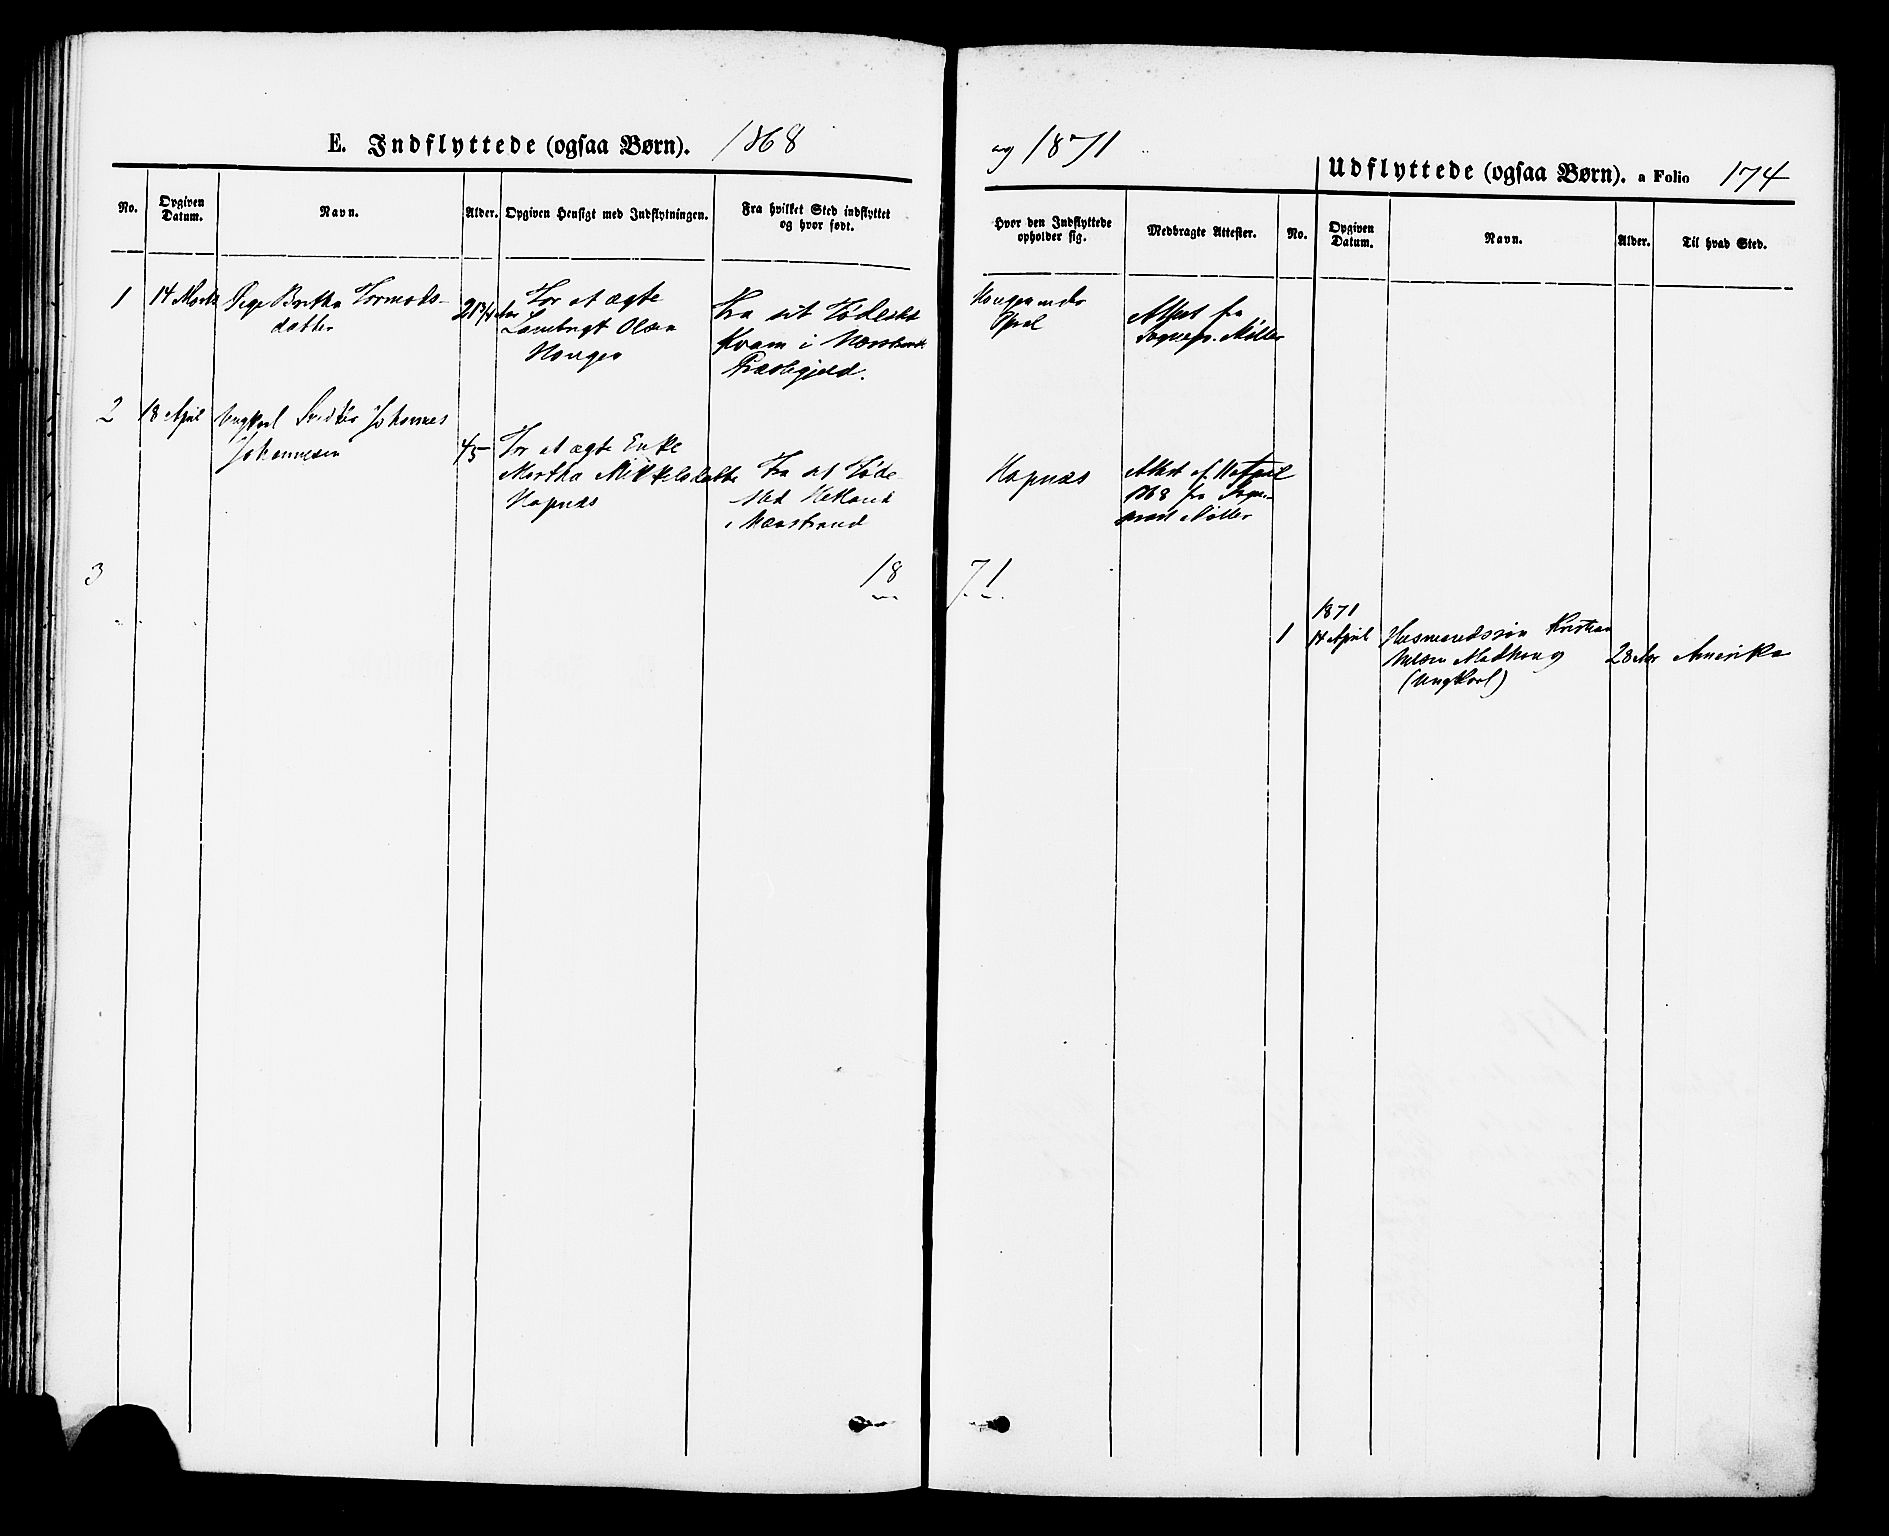 E. Indflyttede (ogsaa Børn). 1868
No.
Opgiven Datum.
Navn.
Alder.
Opgiven Hensigt med Indflytningen.
Fra hvilket Sted indflyttet
og hvor født.
1
14 Marts
Pige Britha Tormods-
datter
For at ægte
Lambregt Olsen
Haugen
Fra sit Fødested
Kvam i Nærstrands
Præstegjeld.
2
18 April
Ungkarl Johannes
Johannesen
45
For at ægte Enke
Martha Mikkelsdatter
Hapnæs
Fra sit Føde
sted Hetland
i Nærstrand
3
18
og 1871
Udflyttede (ogsaa Børn). a Folio 174
Hvor den Indflyttede
opholder sig.
Medbragte Attester.
No.
Opgiven
Datum.
Navn.
Alder.
Til hvad Sted.
Attest fra
Sognepr. Møller
Hapnæs
Attest af April
1868 fra Sogne-
præst Møller
71
1
1871
14 April
Husmandssøn Kristian
Nilsen
(Ungkarl)
28 Aar
Amerika